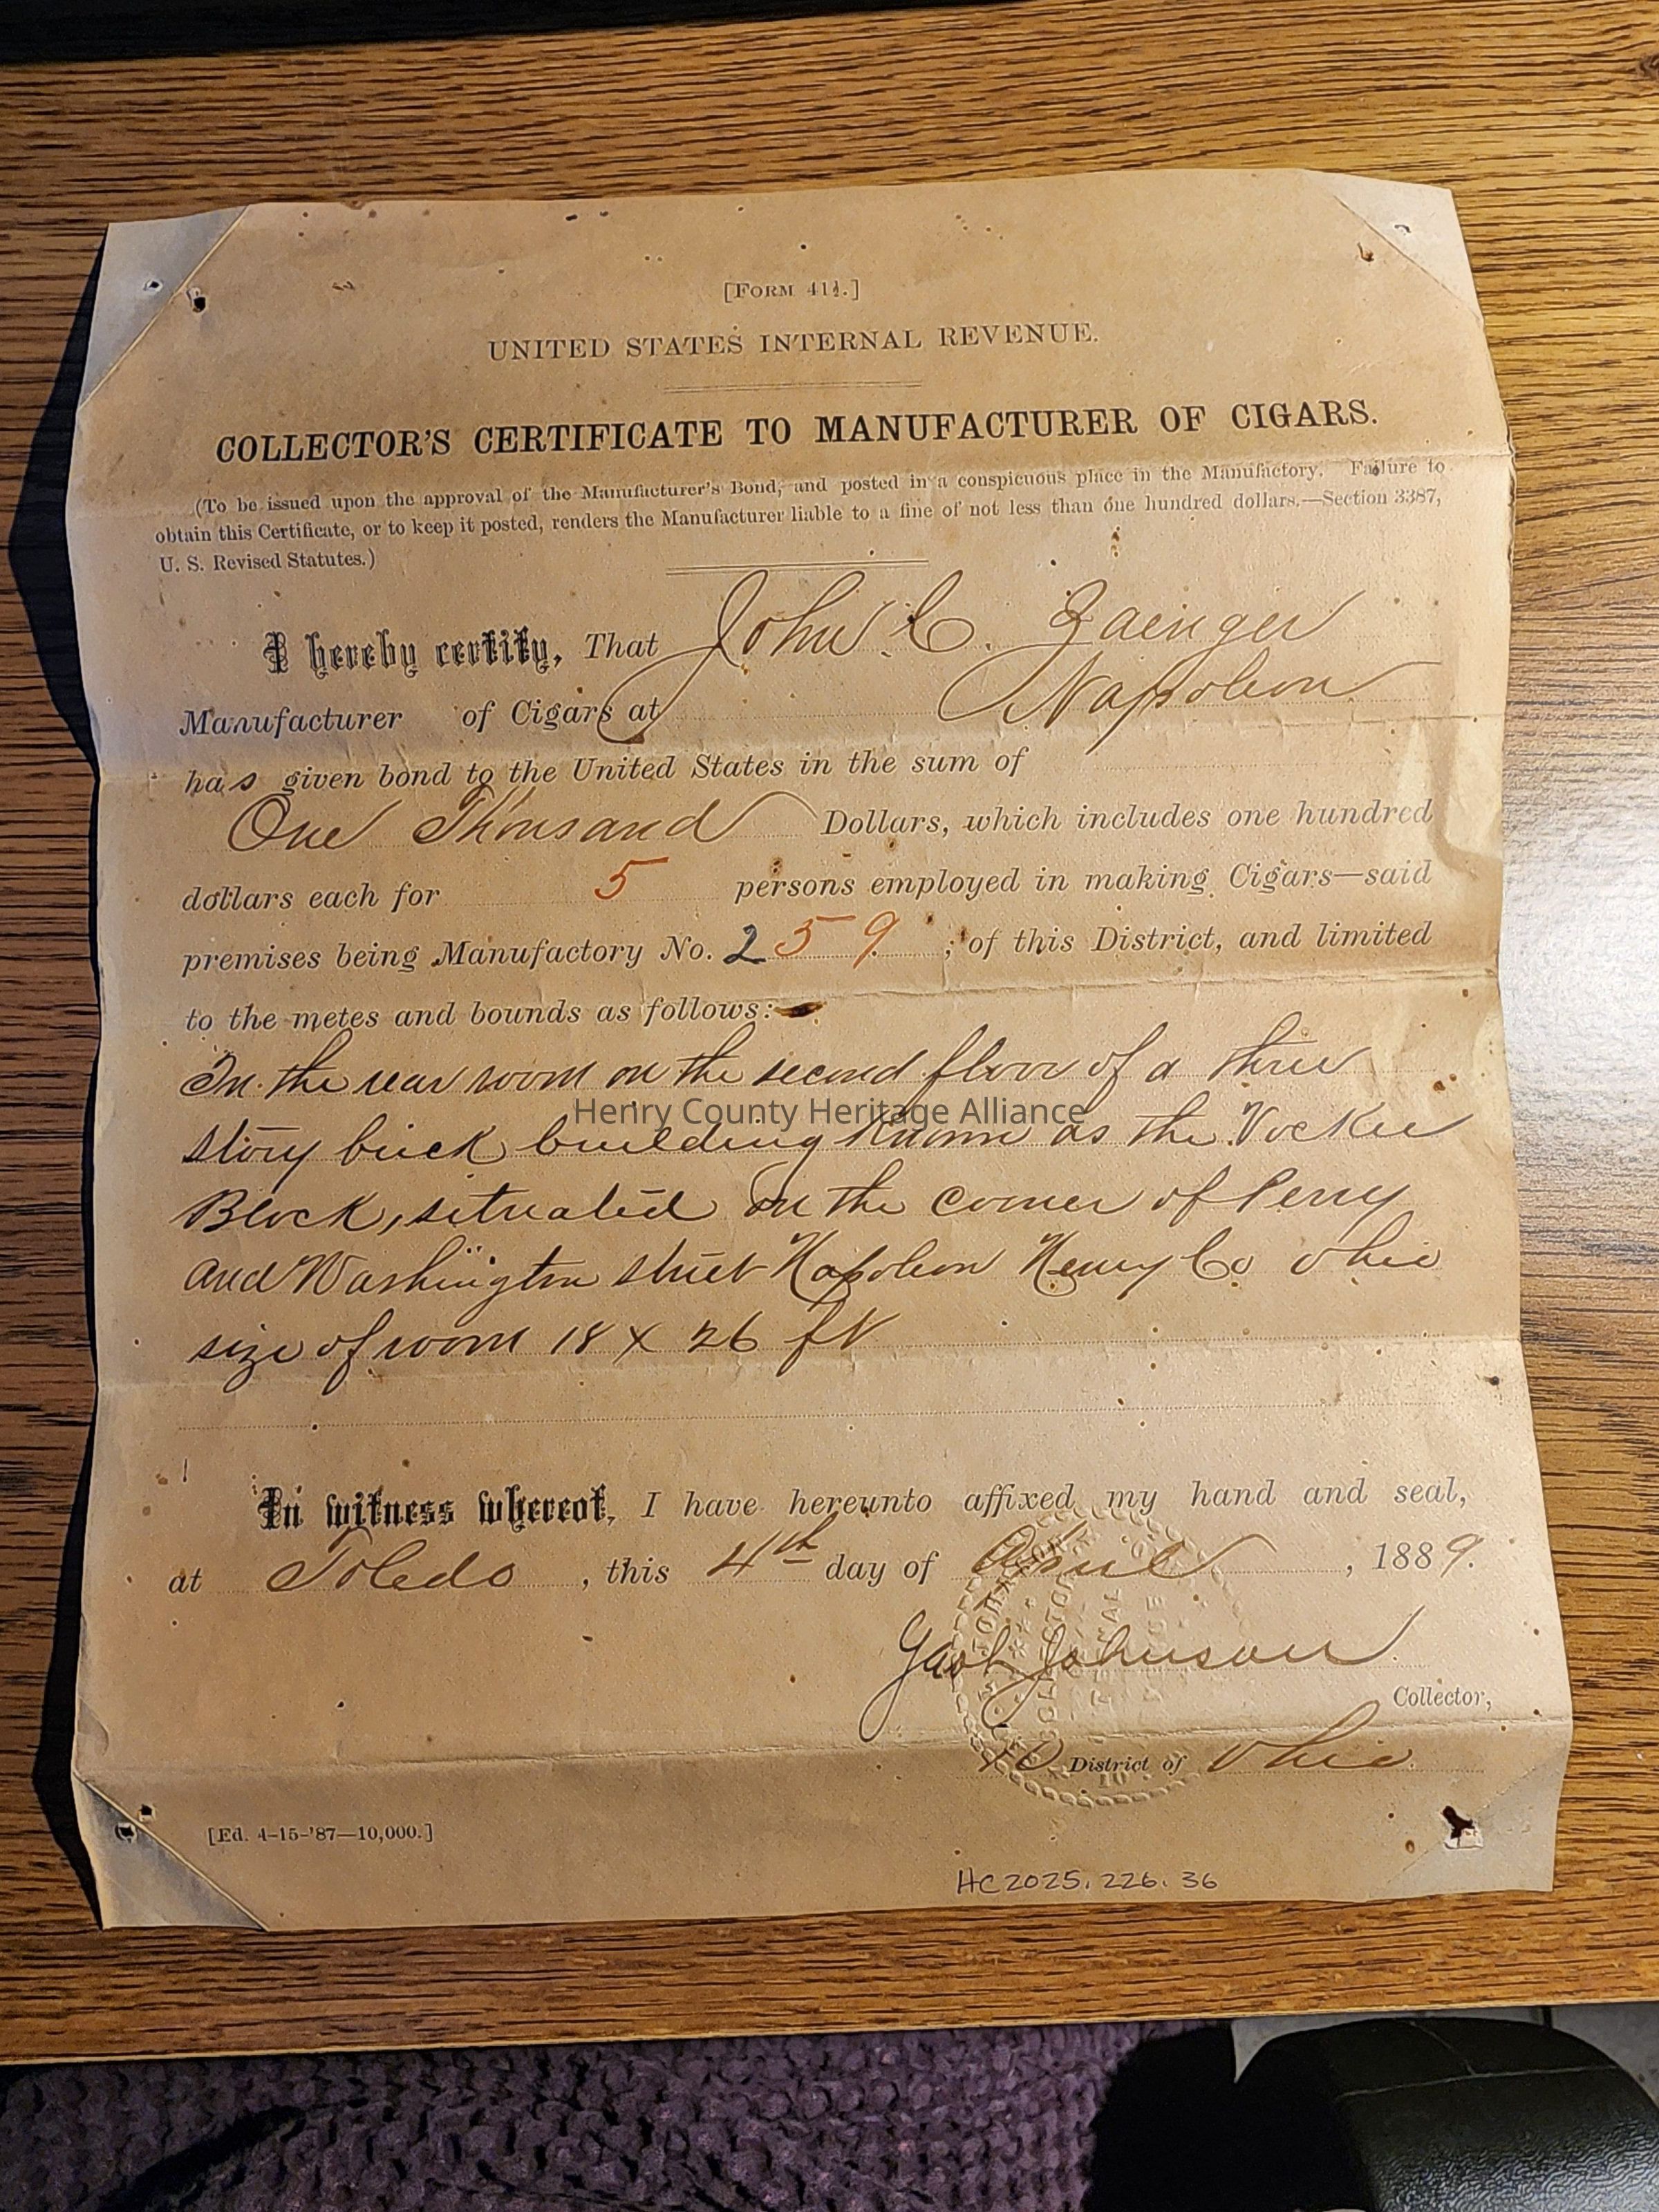 [FORM 41½.]
UNITED STATES INTERNAL REVENUE.
COLLECTOR'S CERTIFICATE TO MANUFACTURER OF CIGARS.
(To be issued upon the approval of the Manufacturer's Bond, and posted in a conspicuous place in the Manufactory. Failure to
obtain this Certificate, or to keep it posted, renders the Manufacturer liable to a fine of not less than one hundred dollars.—Section 3387,
U. S. Revised Statutes.)
I hereby certify, That John C. Zaenger
Manufacturer of Cigars at Napoleon
has given bond to the United States in the sum of
One Thousand Dollars, which includes one hundred
dollars each for 5 persons employed in making Cigars—said
premises being Manufactory No. 259; of this District, and limited
to the metes and bounds as follows:
In the rear room on the second floor of a three
Henry County Heritage Alliance
story brick building known as the Vocke
Block, situated on the corner of Perry
and Washington street Napoleon Henry Co Ohio
size of room 18 X 26 ft
In witness whereof, I have hereunto affixed my hand and seal,
at Toledo, this 4th day of April, 1889.
Johnson
Collector,
10 District of Ohio.
[Ed. 4-15-'87—10,000.]
HC2025.226.36